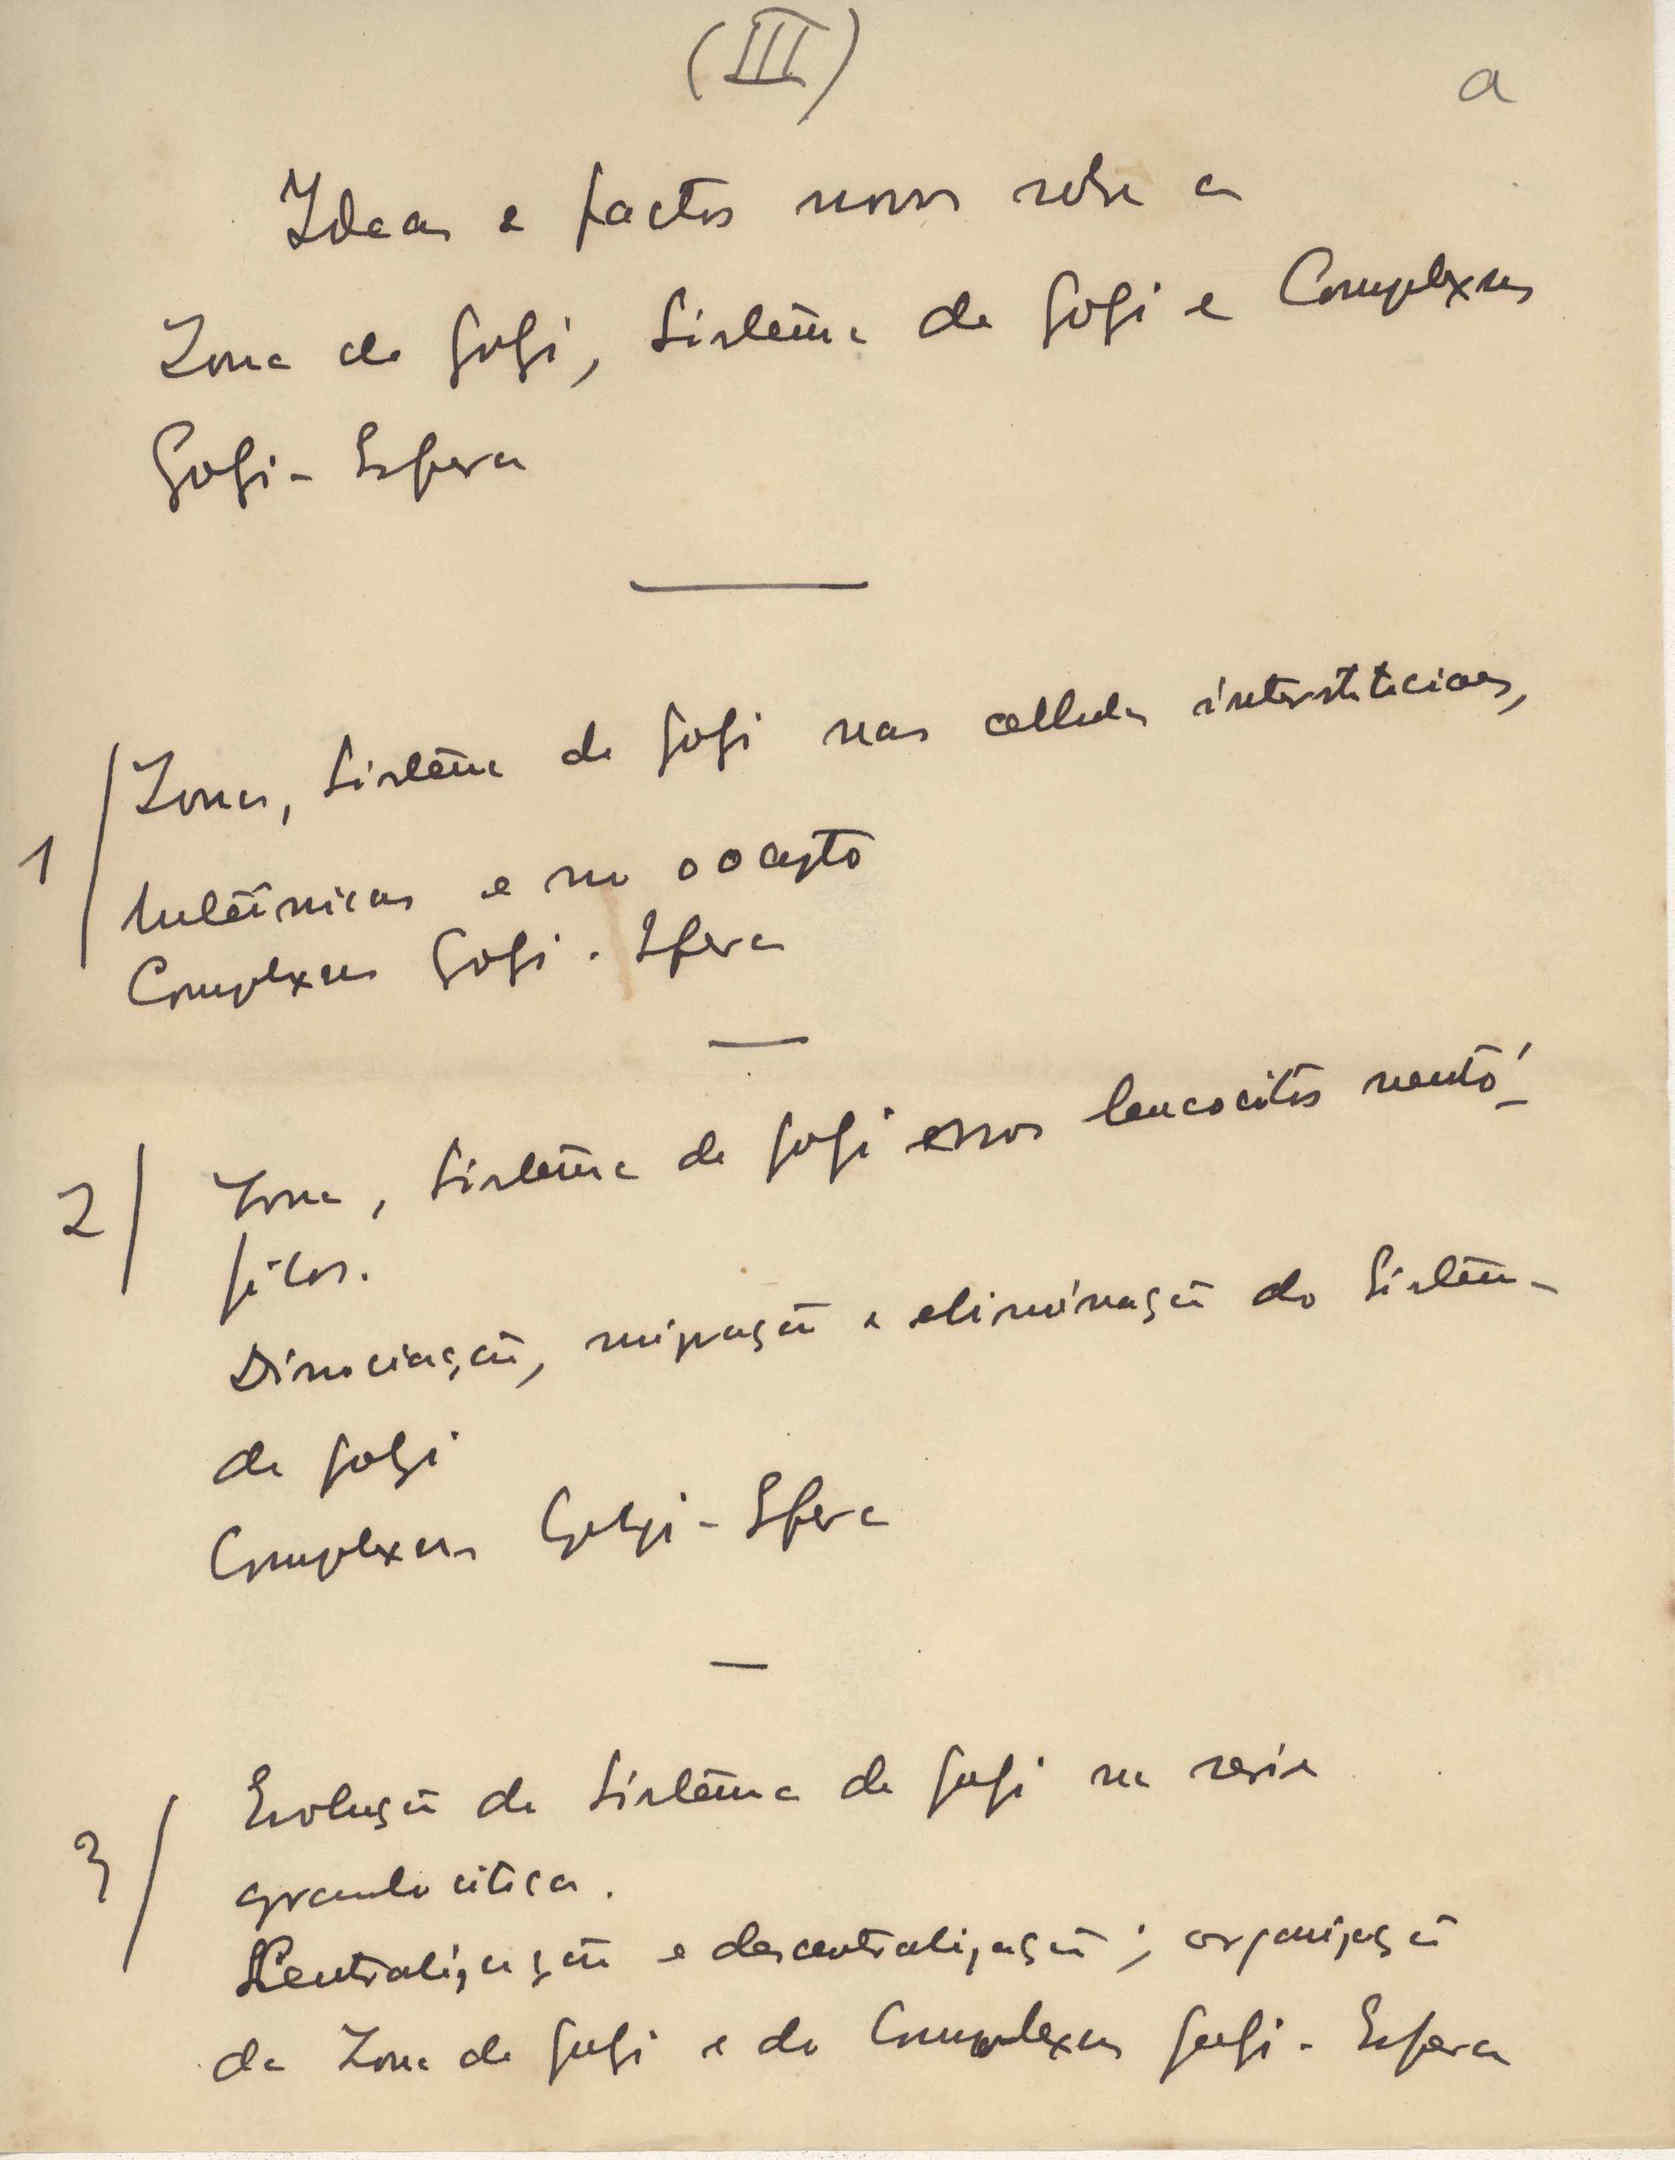 (III)
a
Ideas e factos novos sobre a
Zona de Golgi, Sistêma de Golgi e Complexus
Golgi - Esfera
1/ Zona, Sistêma de Golgi nas cellulas intersticiaes,
luteínicas e no oocyto
Complexus Golgi - Esfera
2/ Zona, Sistêma de Golgi nos leucocitos neutró-
filos.
Dissociação, migração e eliminação do Sistêma
de Golgi
Complexus Golgi - Esfera
3/ Evolução do Sistêma de Golgi na serie
granulocitica.
Centralização e descentralização; organização
da Zona de Golgi e do Complexus Golgi - Esfera